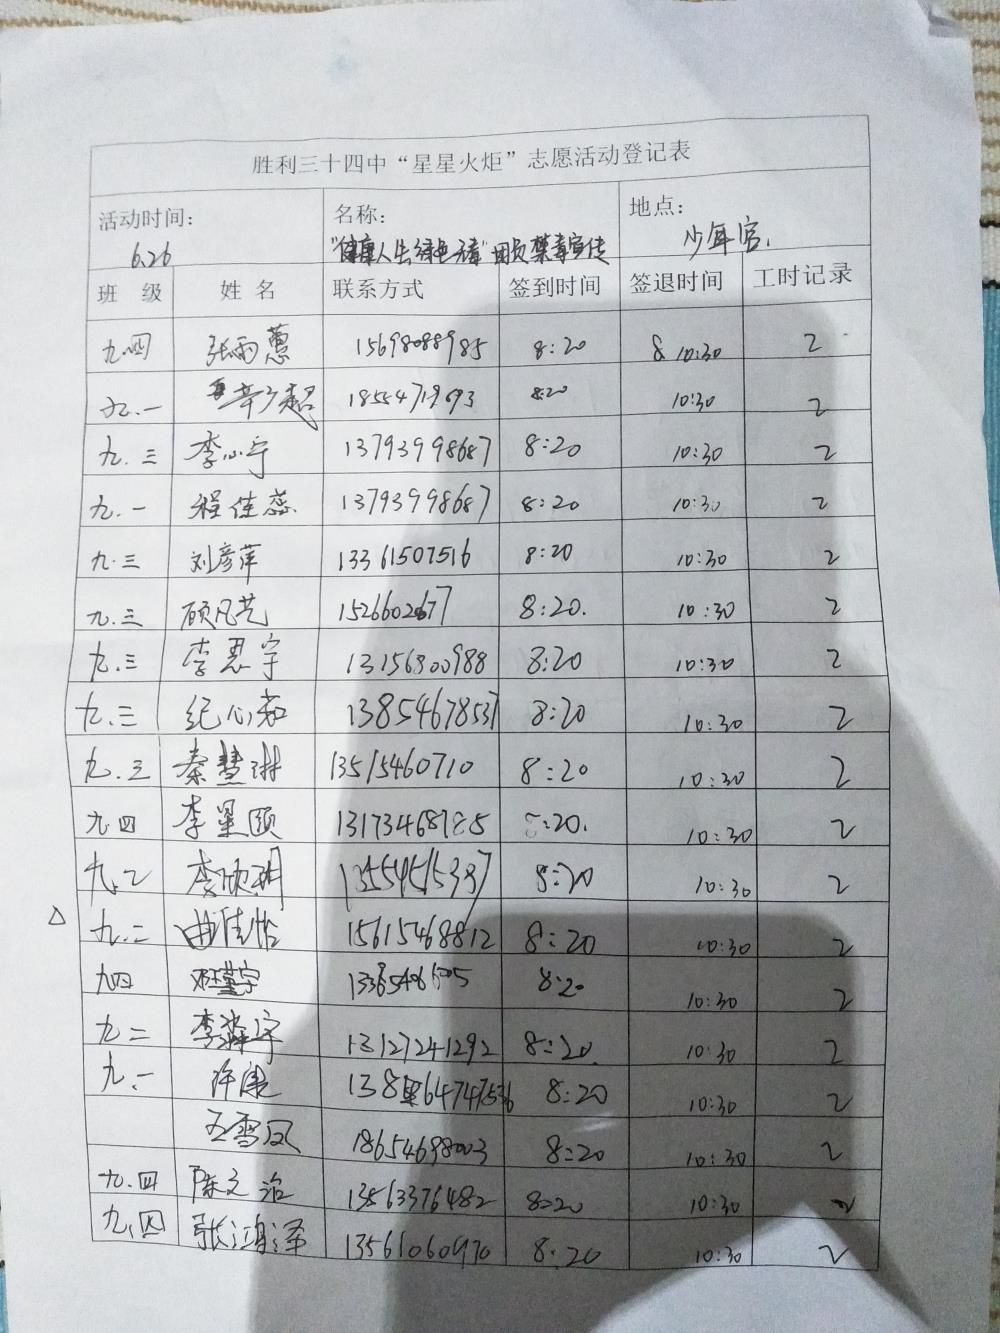 胜利三十四中“星星火炬”志愿活动登记表
活动时间： 名称： 地点：
6.26 “健康人生绿色无毒”团员禁毒宣传 少年宫.
班 级 姓 名 联系方式 签到时间 签退时间 工时记录
九.四 张雨蕙 15698088985 8:20 10:30 2
九.一 8:20 10:30 2
九.三 李心宇 13793998687 8:20 10:30 2
九.一 程佳蕊 13793998687 8:20 10:30 2
九.三 刘彦萍 13361507516 8:20 10:30 2
九.三 顾凡艺 1526602677 8:20. 10:30 2
九.三 李思宇 13156300988 8:20 10:30 2
九.三 纪心和 13854678537 8:20 10:30 2
九.三 秦慧琳 13515460710 8:20 10:30 2
九.四 李星颐 :20. 10:30 2
九.二 李欣玥 8:20 10:30 2
△ 九.二 曲佳怡 15615468812 8:20 10:30 2
九四 8:20 10:30 2
九二 13127241292 8:20 10:30 2
九.一 许潇 8:20 10:30 2
王雪凤 18654698003 8:20 10:30 2
九.四 陈文治 13563376482 8:20 10:30 2
九.四 张鸿泽 13561060970 8:20 10:30 2